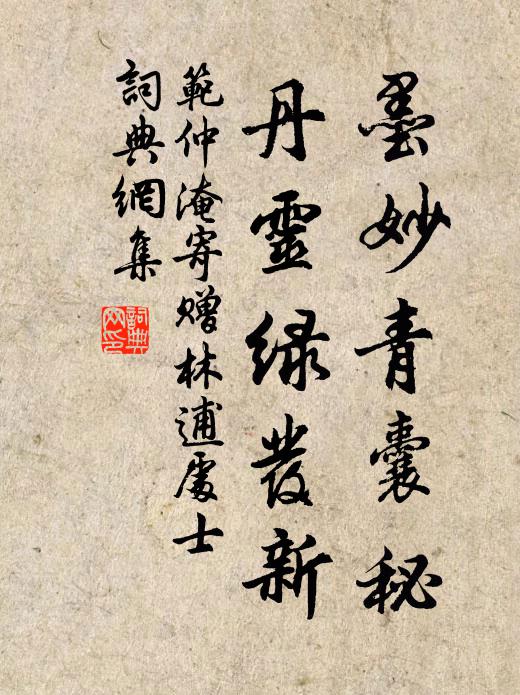 墨妙青囊秘
丹靈綠髮新
範仲淹寄贈林逋處士
詞典網集
詞典網印